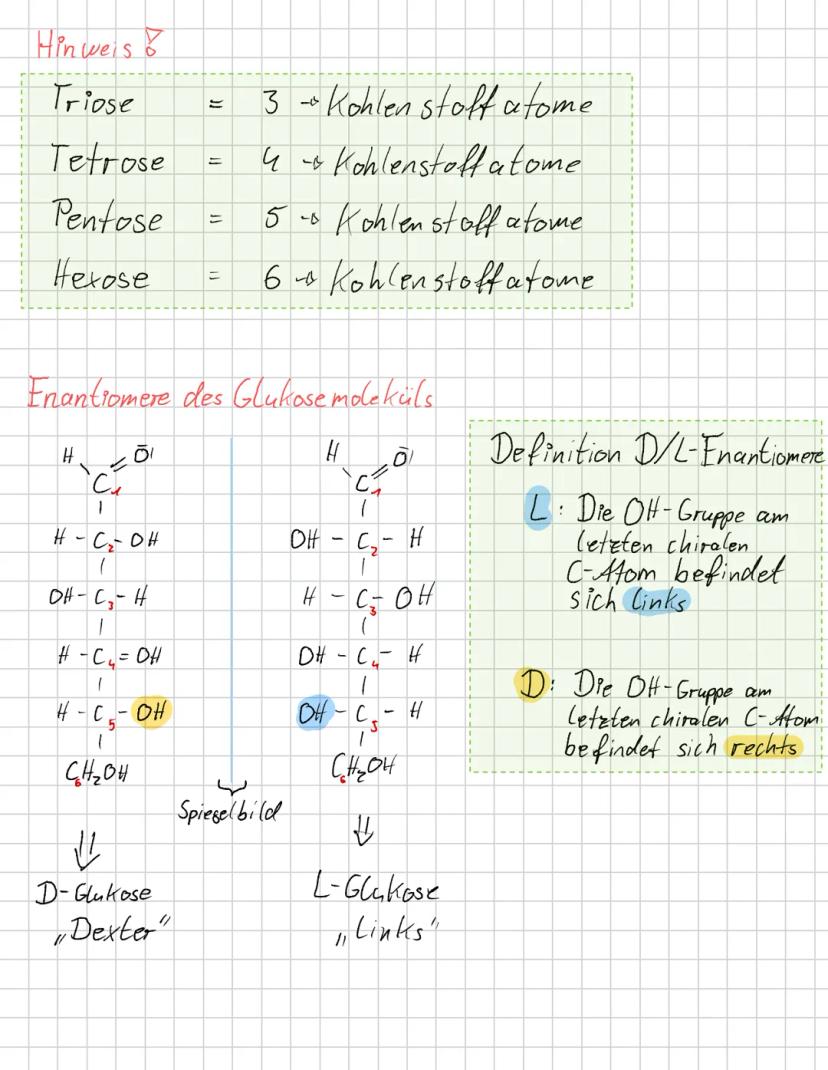 Hinweis!
Triose = 3 → Kohlenstoffatome
Tetrose = 4 → Kohlenstoffatome
Pentose = 5 → Kohlenstoffatome
Hexose = 6 → Kohlenstoffatome
Enantiomere des Glukosemoleküls
H O
C1
H - C2 - OH
OH - C3 - H
H - C4 = OH
H - C5 - OH
C6H2OH
H O
C1
OH - C2 - H
H - C3 - OH
OH - C4 - H
OH - C5 - H
C6H2OH
Spiegelbild
⇓
D-Glukose
„Dexter"
⇓
L-Glukose
„Links"
Definition D/L-Enantiomere
L: Die OH-Gruppe am
letzten chiralen
C-Atom befindet
sich links
D: Die OH-Gruppe am
letzten chiralen C-Atom
befindet sich rechts